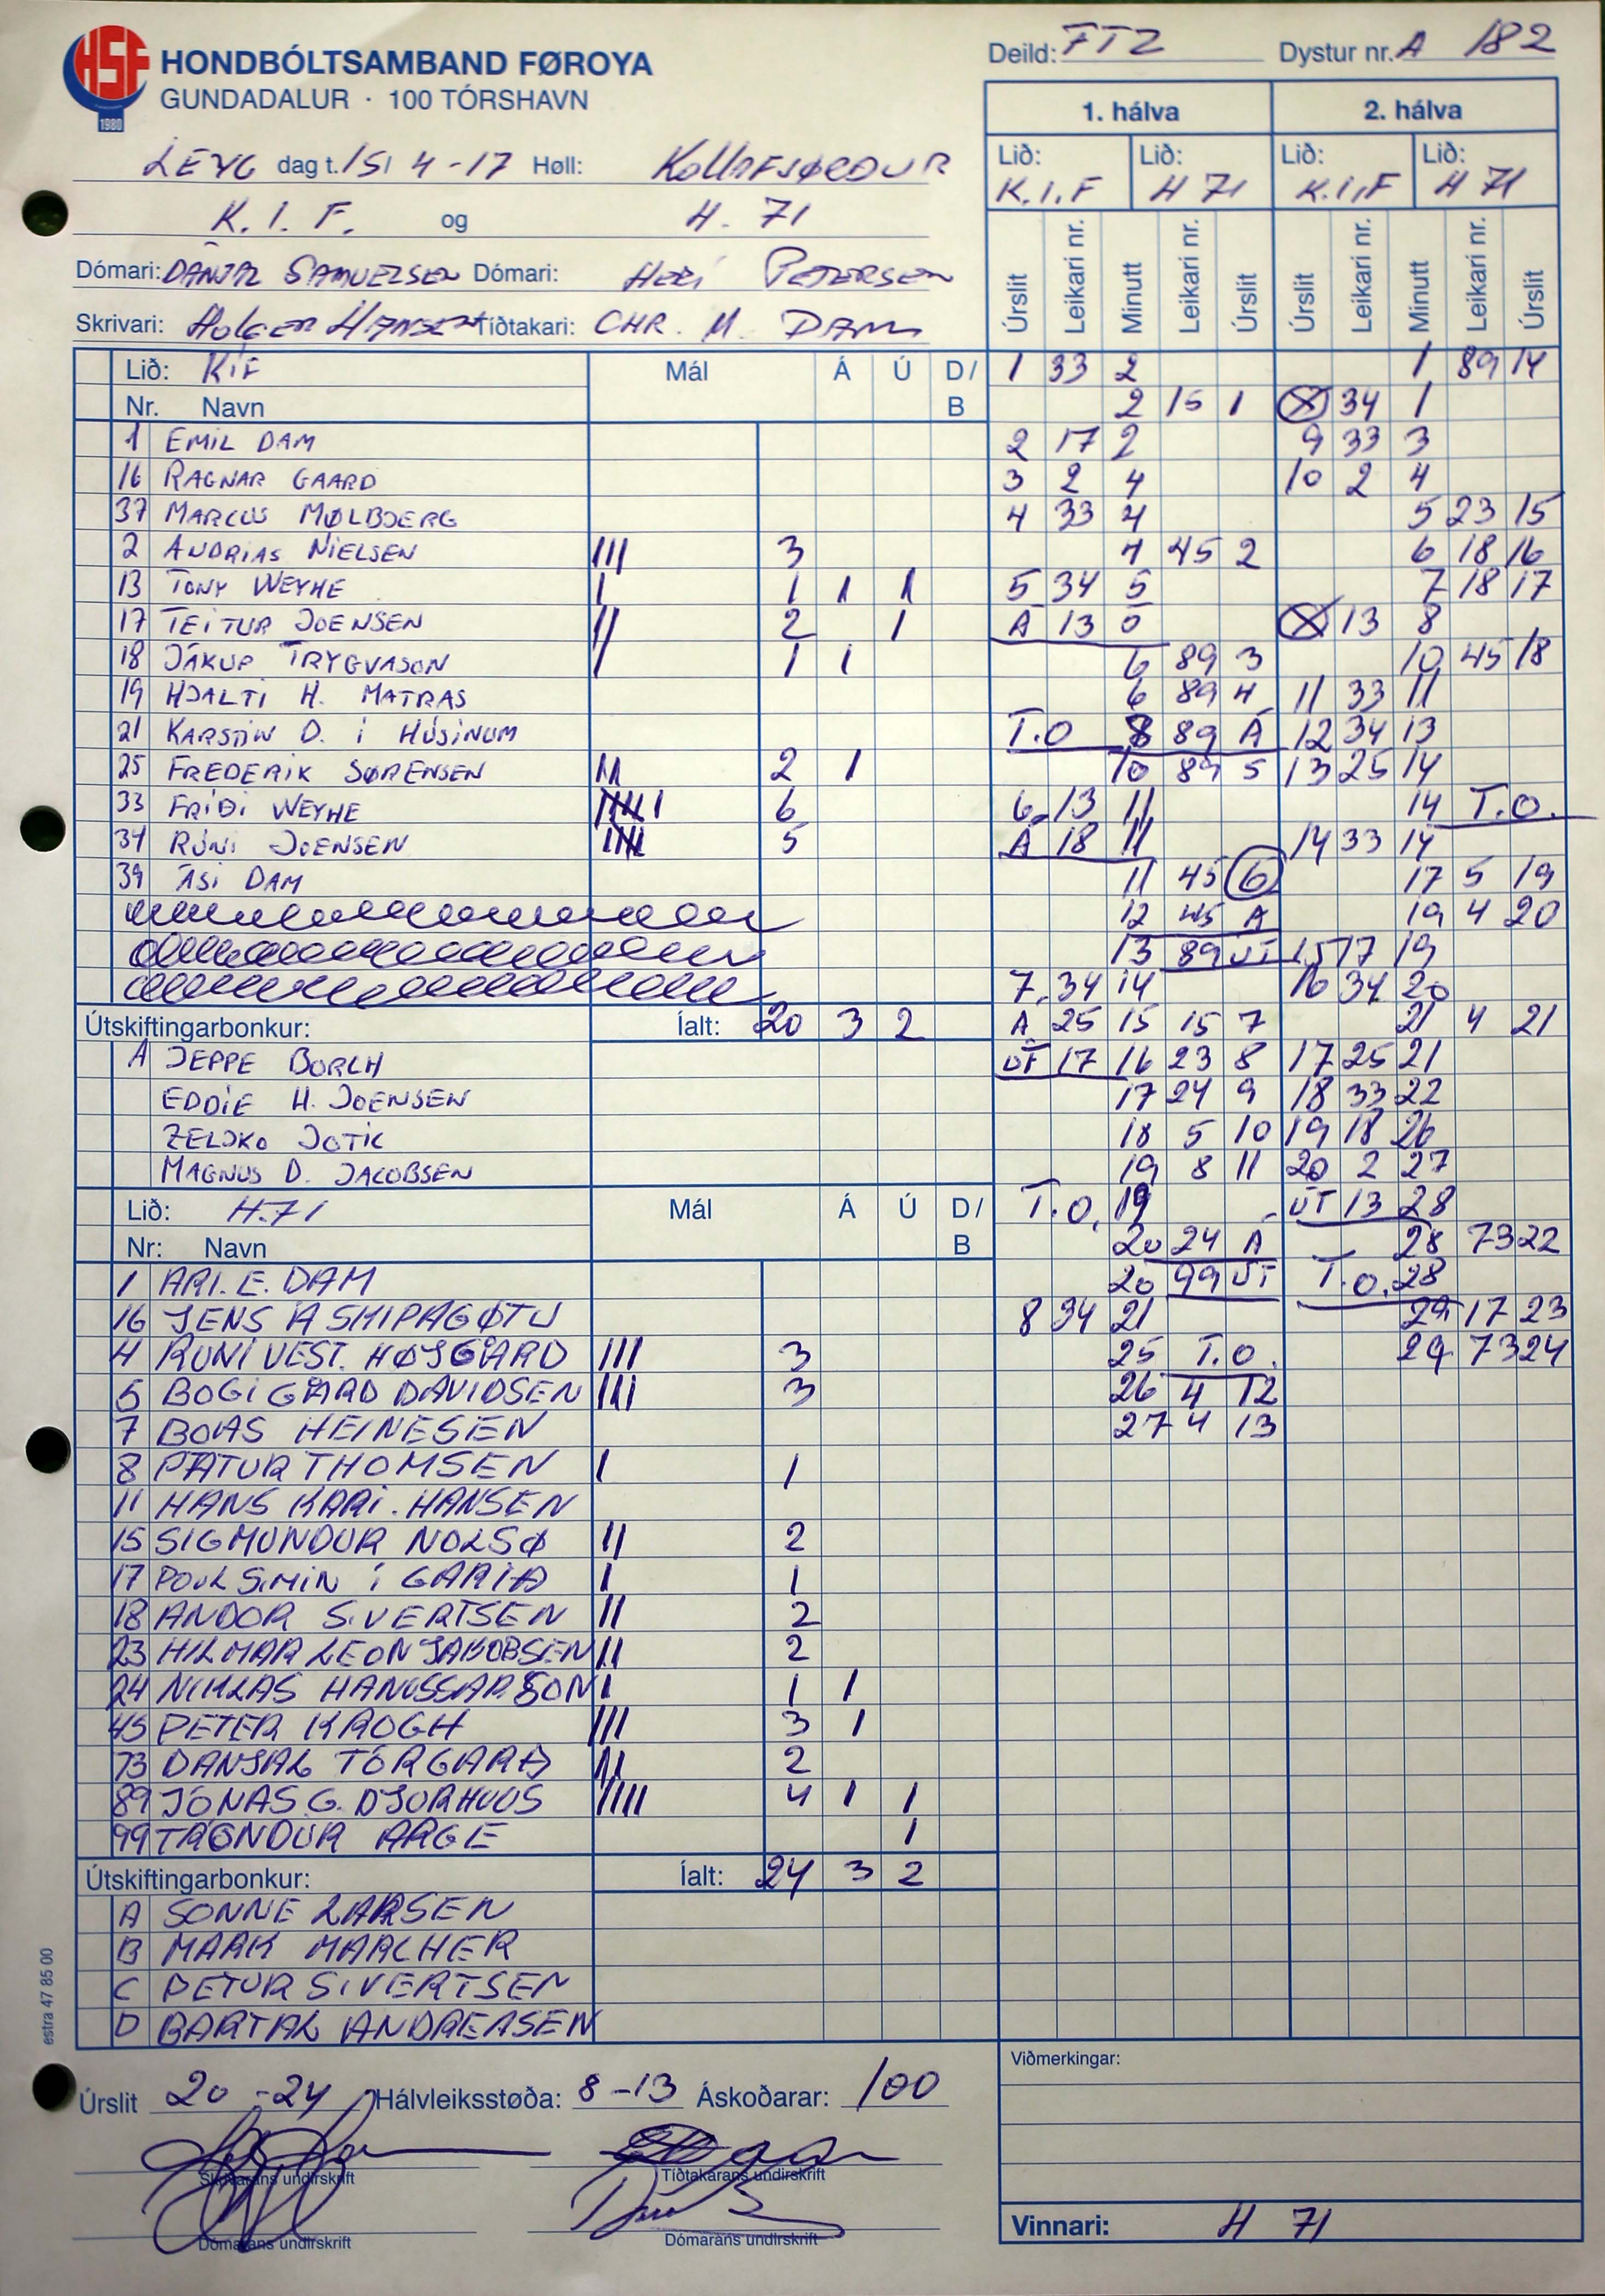 HSF
1980
HONDBÓLTSAMBAND FØROYA
GUNDADALUR · 100 TÓRSHAVN
Deild: FT2 Dystur nr. A 182
LEYG dag t. 15/ 4-17 Høll: KOLLAFJØRÐUR
K. I. F. og H. 71
Dómari: DÁNJAL SAMUELSEN Dómari: HERI PETERSEN
Skrivari: Holger Hansen Tíðtakari: CHR. M. DAM
1. hálva 2. hálva
Lið: Lið: Lið: Lið:
K.I.F H 71 K.I.F H 71
Úrslit Leikari nr. Minutt Leikari nr. Úrslit Úrslit Leikari nr. Minutt Leikari nr. Úrslit
Lið: KÍF Mál Á Ú D/
Nr. Navn B
1 EMIL DAM
16 RAGNAR GAARD
37 MARCUS MØLBJERG
2 ANDRIAS NIELSEN III 3
13 TONY WEYHE I 1 1 1
17 TEITUR JOENSEN II 2 1
18 JÁKUP TRYGVASON I 1 1
19 HJALTI H. MATRAS
21 KARSTIN D. Í HÚSINUM
25 FREDERIK SØRENSEN II 2 1
33 FRÍÐI WEYHE IIIII I 6
34 RÓNI JOENSEN IIIII 5
39 ÁSI DAM
Útskiftingarbonkur: Íalt: 20 3 2
A JEPPE BORCH
EDDIE H. JOENSEN
ZELJKO JOTIC
MAGNUS D. JACOBSEN
Lið: H.71 Mál Á Ú D/
Nr: Navn B
1 ARI. E. DAM
16 JENS Á SKIPAGØTU
4 RÚNI VEST. HØJGAARD III 3
5 BOGI GÅRD DAVIDSEN III 3
7 BOAS HEINESEN
8 PÆTUR THOMSEN I 1
11 HANS KÁRI. HANSEN
15 SIGMUNDUR NOLSØ II 2
17 POUL SIMIN Í GARÐA I 1
18 ANDOR SIVERTSEN II 2
23 HILMAR LEON JAKOBSEN II 2
24 NIKLAS HANUSSARSON I 1 1
45 PETER KROGH III 3 1
73 DANJAL TORGARÐ II 2
89 JÓNAS G. DJURHUUS IIII 4 1 1
99 TRÓNDUR ARGE 1
Útskiftingarbonkur: Íalt: 24 3 2
A SONNE LARSEN
B MARK MARCHER
C PETUR SIVERTSEN
D BARTAL ANDREASEN
1 33 2
2 15 1
2 17 2
3 2 4
4 33 4
4 45 2
5 34 5
Á 13 5
6 89 3
6 89 4
T.O 8 89 Á
10 89 5
6 13 11
Á 18 11
11 45 6
12 45 Á
13 89 ÚT
7 34 14
Á 25 15 15 7
ÚT 17 16 23 8
17 24 9
18 5 10
19 8 11
T.O. 19
20 24 Á
20 99 ÚT
8 34 21
25 T.O.
26 4 12
27 4 13
1 89 14
34 1
9 33 3
10 2 4
5 23 15
6 18 16
7 18 17
13 8
10 45 18
11 33 11
12 34 13
13 25 14
14 T.O.
14 33 14
17 5 19
19 4 20
15 17 19
16 34 20
21 4 21
17 25 21
18 33 22
19 18 26
20 2 27
ÚT 13 28
28 73 22
T.O. 28
29 17 23
29 73 24
Úrslit 20 - 24 Hálvleiksstøða: 8 - 13 Áskoðarar: 100
Skrivarans undirskrift Tíðtakarans undirskrift
Dómarans undirskrift Dómarans undirskrift
Viðmerkingar:
Vinnari: H 71
estra 47 85 00